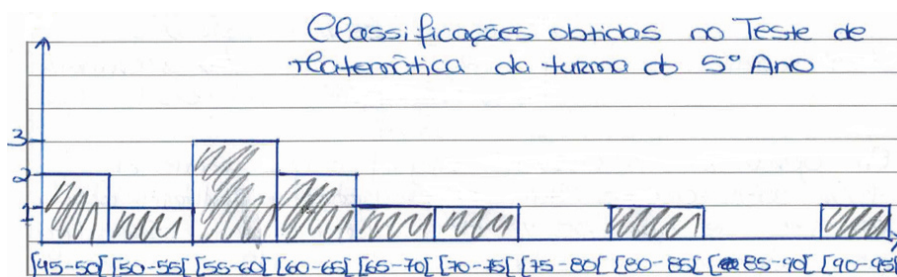 Classificações obtidas no Teste de
Matemática da turma do 5º Ano
3
2
1
[45-50[ [50-55[ [55-60[ [60-65[ [65-70[ [70-75[ [75-80[ [80-85[ [85-90[ [90-95[